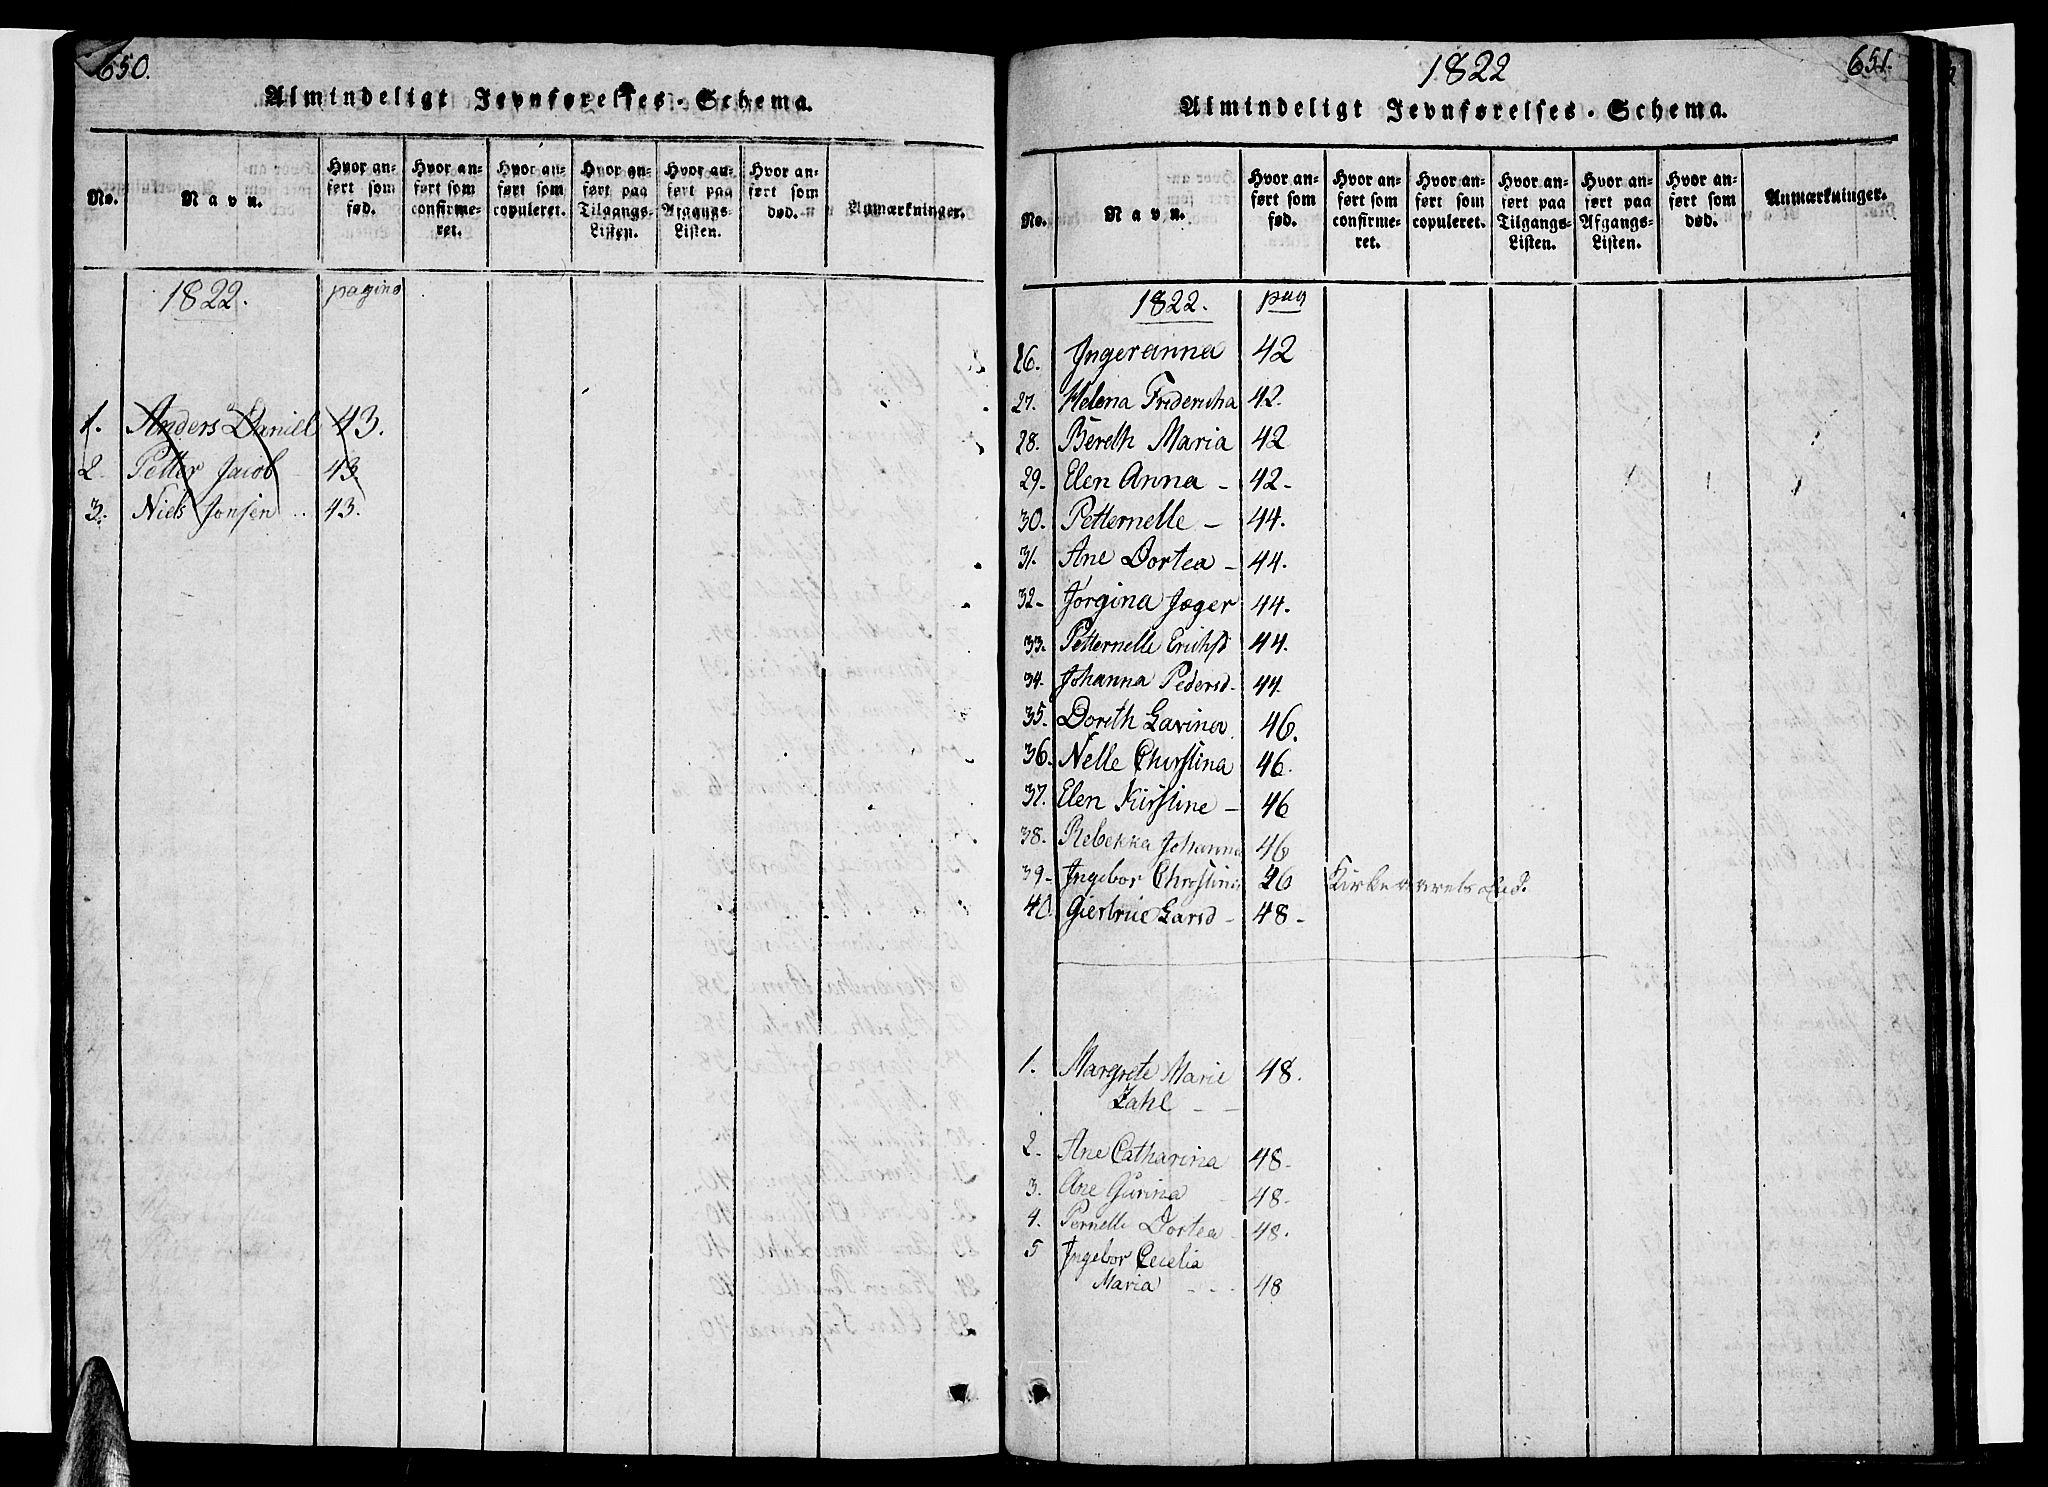 650.
Almindeligt Jevnførelses-Schema.
No.
Navn.
Hvor anført som fød.
Hvor anført som confirmeret.
Hvor anført som copuleret.
Hvor anført paa Tilgangs-Listen.
Hvor anført paa Afgangs-Listen.
Hvor anført som død.
Anmærkninger.
1822. pagina
1. Anders Daniel 43.
2. Petter Jacob 43.
3. Niels Jonsen 43.
1822
651.
Almindeligt Jevnførelses-Schema.
No.
Navn.
Hvor anført som fød.
Hvor anført som confirmeret.
Hvor anført som copuleret.
Hvor anført paa Tilgangs-Listen.
Hvor anført paa Afgangs-Listen.
Hvor anført som død.
Anmærkninger.
1822. pag
26. Ingeranna 42
27. Helena Fridericha 42.
28. Bereth Maria 42
29. Elen Anna - 42-
30. Petternelle - 44.
31. Ane Dortea - 44.
32- Jörgina Jæger 44.
33. Petternelle Erichsd 44.
34. Johanna Pedersd. 44.
35. Doreth Lavina 46.
36. Nelle Chirstina 46.
37. Elen Kirstine - 46
38. Rebekka Johanna 46
39- Ingebor Christina 26
40. Giertrue Larsd - 48-
1. Margrete Marie 48.
Zahl - -
2. Ane Catharina 48-
3. Ane Gurina 48-
4. Pernelle Dortea 48.
5 Ingebor Cecelia
Maria - - - 48